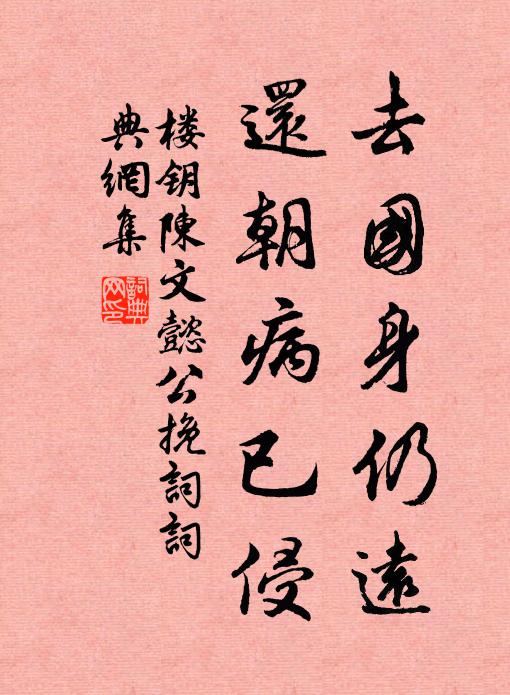 去國身仍遠
還朝病已侵
楼钥陳文懿公挽詞詞
典網集
詞典
网印